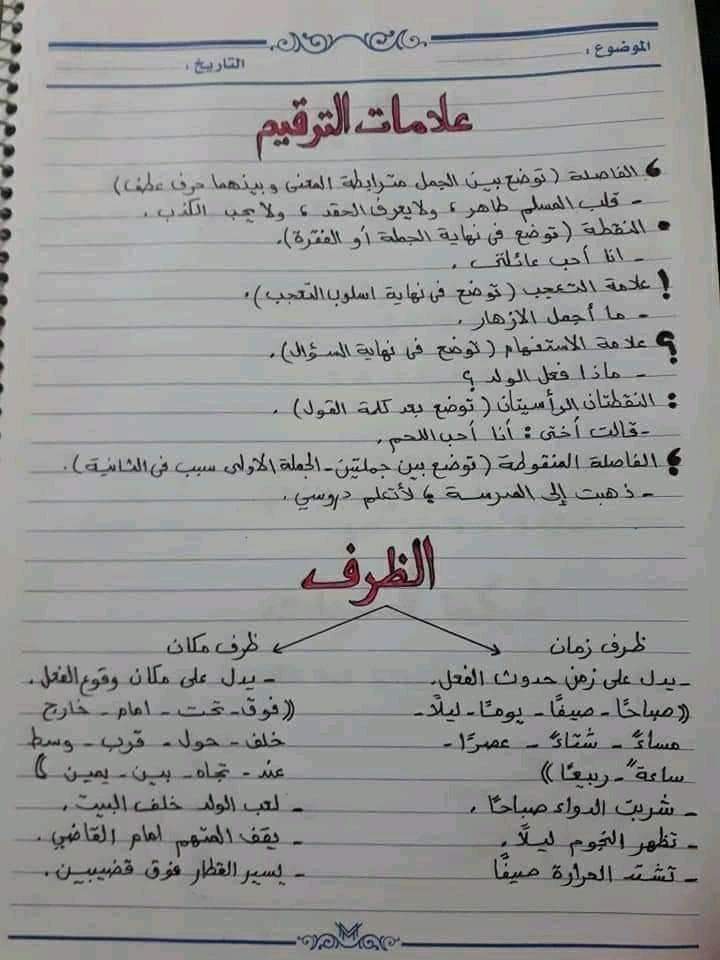 الموضوع :
التاريخ :
علامات الترقيم
، الفاصلة (توضع بين الجمل مترابطة المعنى وبينهما حرف عطف)
- قلب المسلم طاهر ، ولا يعرف الحقد ، ولا يحب الكذب .
• النقطة (توضع فى نهاية الجملة أو الفقرة).
- انا أحب عائلتى .
! علامة التعجب (توضع فى نهاية اسلوب التعجب).
- ما أجمل الازهار .
؟ علامة الاستفهام (توضع فى نهاية السؤال).
- ماذا فعل الولد ؟
: النقطتان الرأسيتان (توضع بعد كلمة القول) .
- قالت أختى : أنا أحب اللحم .
؛ الفاصلة المنقوطة (توضع بين جملتين - الجملة الاولى سبب فى الثانية).
- ذهبت إلى المدرسة ؛ لأتعلم دروسي .
الظرف
ظرف زمان
- يدل على زمن حدوث الفعل.
((صباحًا - صيفًا - يومًا - ليلًا -
مساءً - شتاءً - عصرًا -
ساعةً - ربيعًا))
- شربت الدواء صباحًا .
- تظهر النجوم ليلًا .
- تشتد الحرارة صيفًا
ظرف مكان
- يدل على مكان وقوع الفعل .
((فوق - تحت - امام - خارج
خلف - حول - قرب - وسط
عند - تجاه - بين - يمين ))
- لعب الولد خلف البيت .
- يقف المتهم امام القاضي .
- يسير القطار فوق قضيبين .